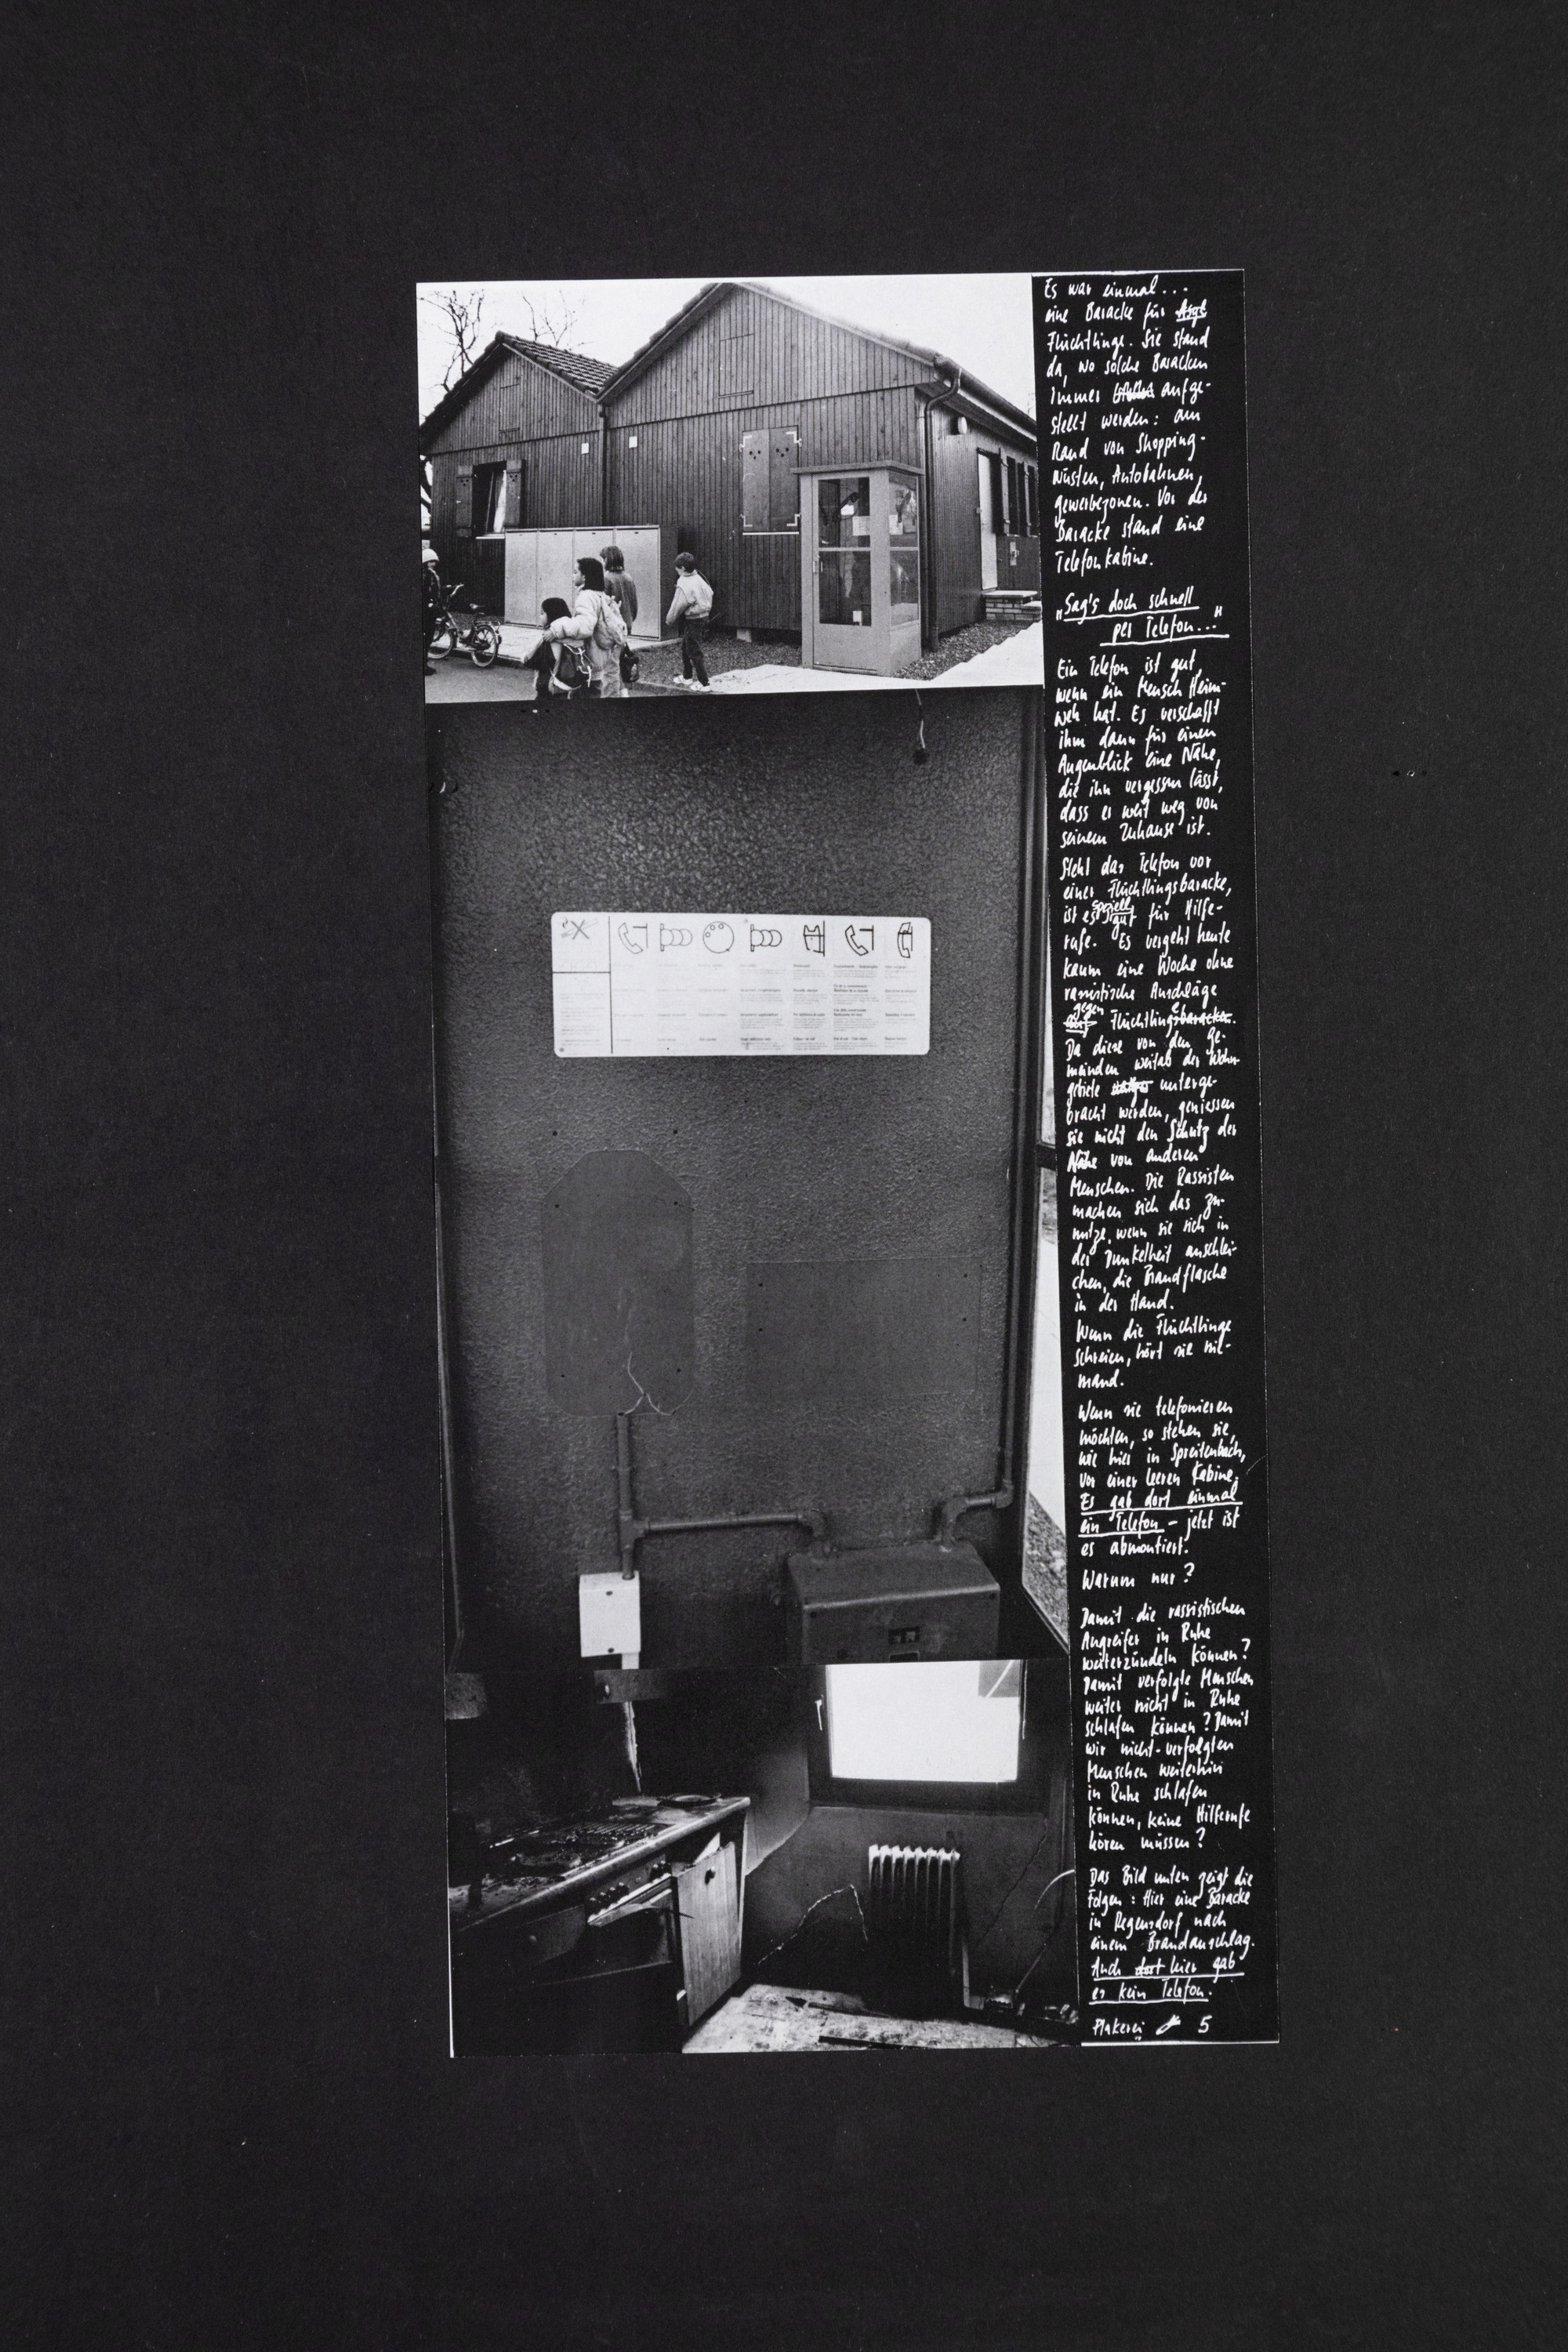 Es war einmal...
eine Baracke für Asyl
Flüchtlinge. Sie stand
da, wo solche Baracken
immer aufge-
stellt werden: am
Rand von Shopping-
wüsten, Autobahnen,
gewerbezonen. Vor der
Baracke stand eine
Telefonkabine.
"Sag's doch schnell
per Telefon..."
Ein Telefon ist gut,
wenn ein Mensch Heim-
weh hat. Es verschafft
ihm dann für einen
Augenblick eine Nähe,
die ihn vergessen lässt,
dass er weit weg von
seinem Zuhause ist.
Steht das Telefon vor
einer Flüchtlingsbaracke,
ist es speziell gut für Hilfe-
rufe. Es vergeht heute
kaum eine Woche ohne
rassistische Anschläge
gegen
auf Flüchtlingsbaracken.
Da diese von den Ge-
meinden weitab der Wohn-
gebiete unterge-
bracht werden, geniessen
sie nicht den Schutz der
Nähe von anderen
Menschen. Die Rassisten
machen sich das zu-
nutze, wenn sie sich in
der Dunkelheit anschlei-
chen, die Brandflasche
in der Hand.
Wenn die Flüchtlinge
schreien, hört sie nie-
mand.
Wenn sie telefonieren
möchten, so stehen sie,
wie hier in Spreitenbach,
vor einer leeren Kabine.
Es gab dort einmal
ein Telefon – jetzt ist
es abmontiert.
Warum nur?
Damit die rassistischen
Angreifer in Ruhe
weiterzündeln können?
Damit verfolgte Menschen
weiter nicht in Ruhe
schlafen können? Damit
wir nicht-verfolgten
Menschen weiterhin
in Ruhe schlafen
können, keine Hilferufe
hören müssen?
Das Bild unten zeigt die
Folgen: Hier eine Baracke
in Regensdorf nach
einem Brandanschlag.
Auch dort hier gab
es kein Telefon.
Plakerei 5